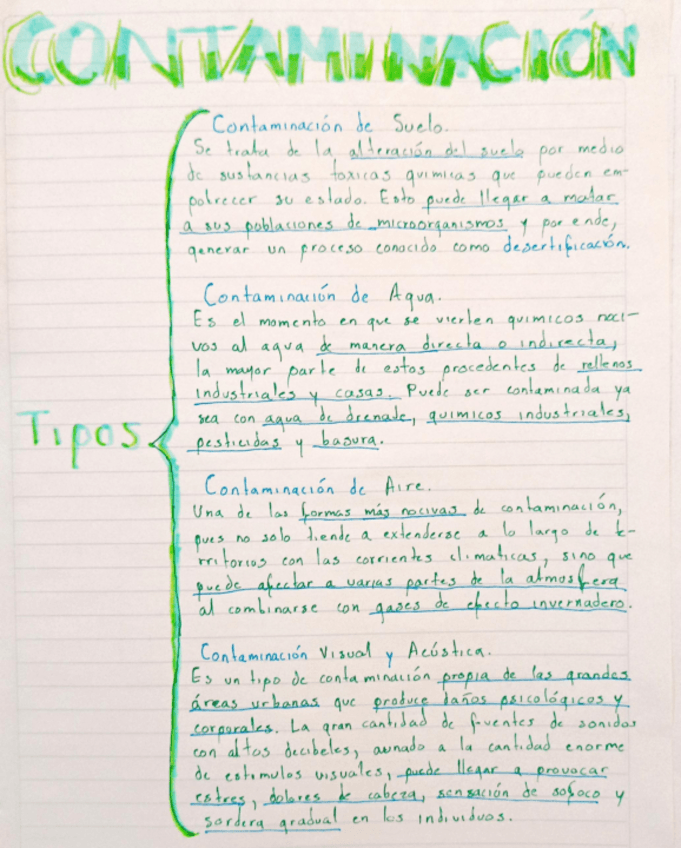 CONTAMINACIÓN
Tipos
Contaminación de Suelo.
Se trata de la alteración del suelo por medio
de sustancias toxicas quimicas que pueden em-
pobrecer su estado. Esto puede llegar a matar
a sus poblaciones de microorganismos y por ende,
generar un proceso conocido como desertificación.
Contaminación de Agua.
Es el momento en que se vierten quimicos noci-
vos al agua de manera directa o indirecta,
la mayor parte de estos procedentes de rellenos
industriales y casas. Puede ser contaminada ya
sea con agua de drenade, quimicos industriales,
pesticidas y basura.
Contaminación de Aire.
Una de las formas más nocivas de contaminación,
pues no solo tiende a extenderse a lo largo de te-
rritorios con las corrientes climaticas, sino que
puede afectar a varias partes de la atmosfera
al combinarse con gases de efecto invernadero.
Contaminación Visual y Acústica.
Es un tipo de contaminación propia de las grandes
áreas urbanas que produce daños psicológicos y
corporales. La gran cantidad de fuentes de sonidos
con altos decibeles, aunado a la cantidad enorme
de estimulos visuales, puede llegar a provocar
estres, dolores de cabeza, sensación de sofoco y
sordera gradual en los individuos.